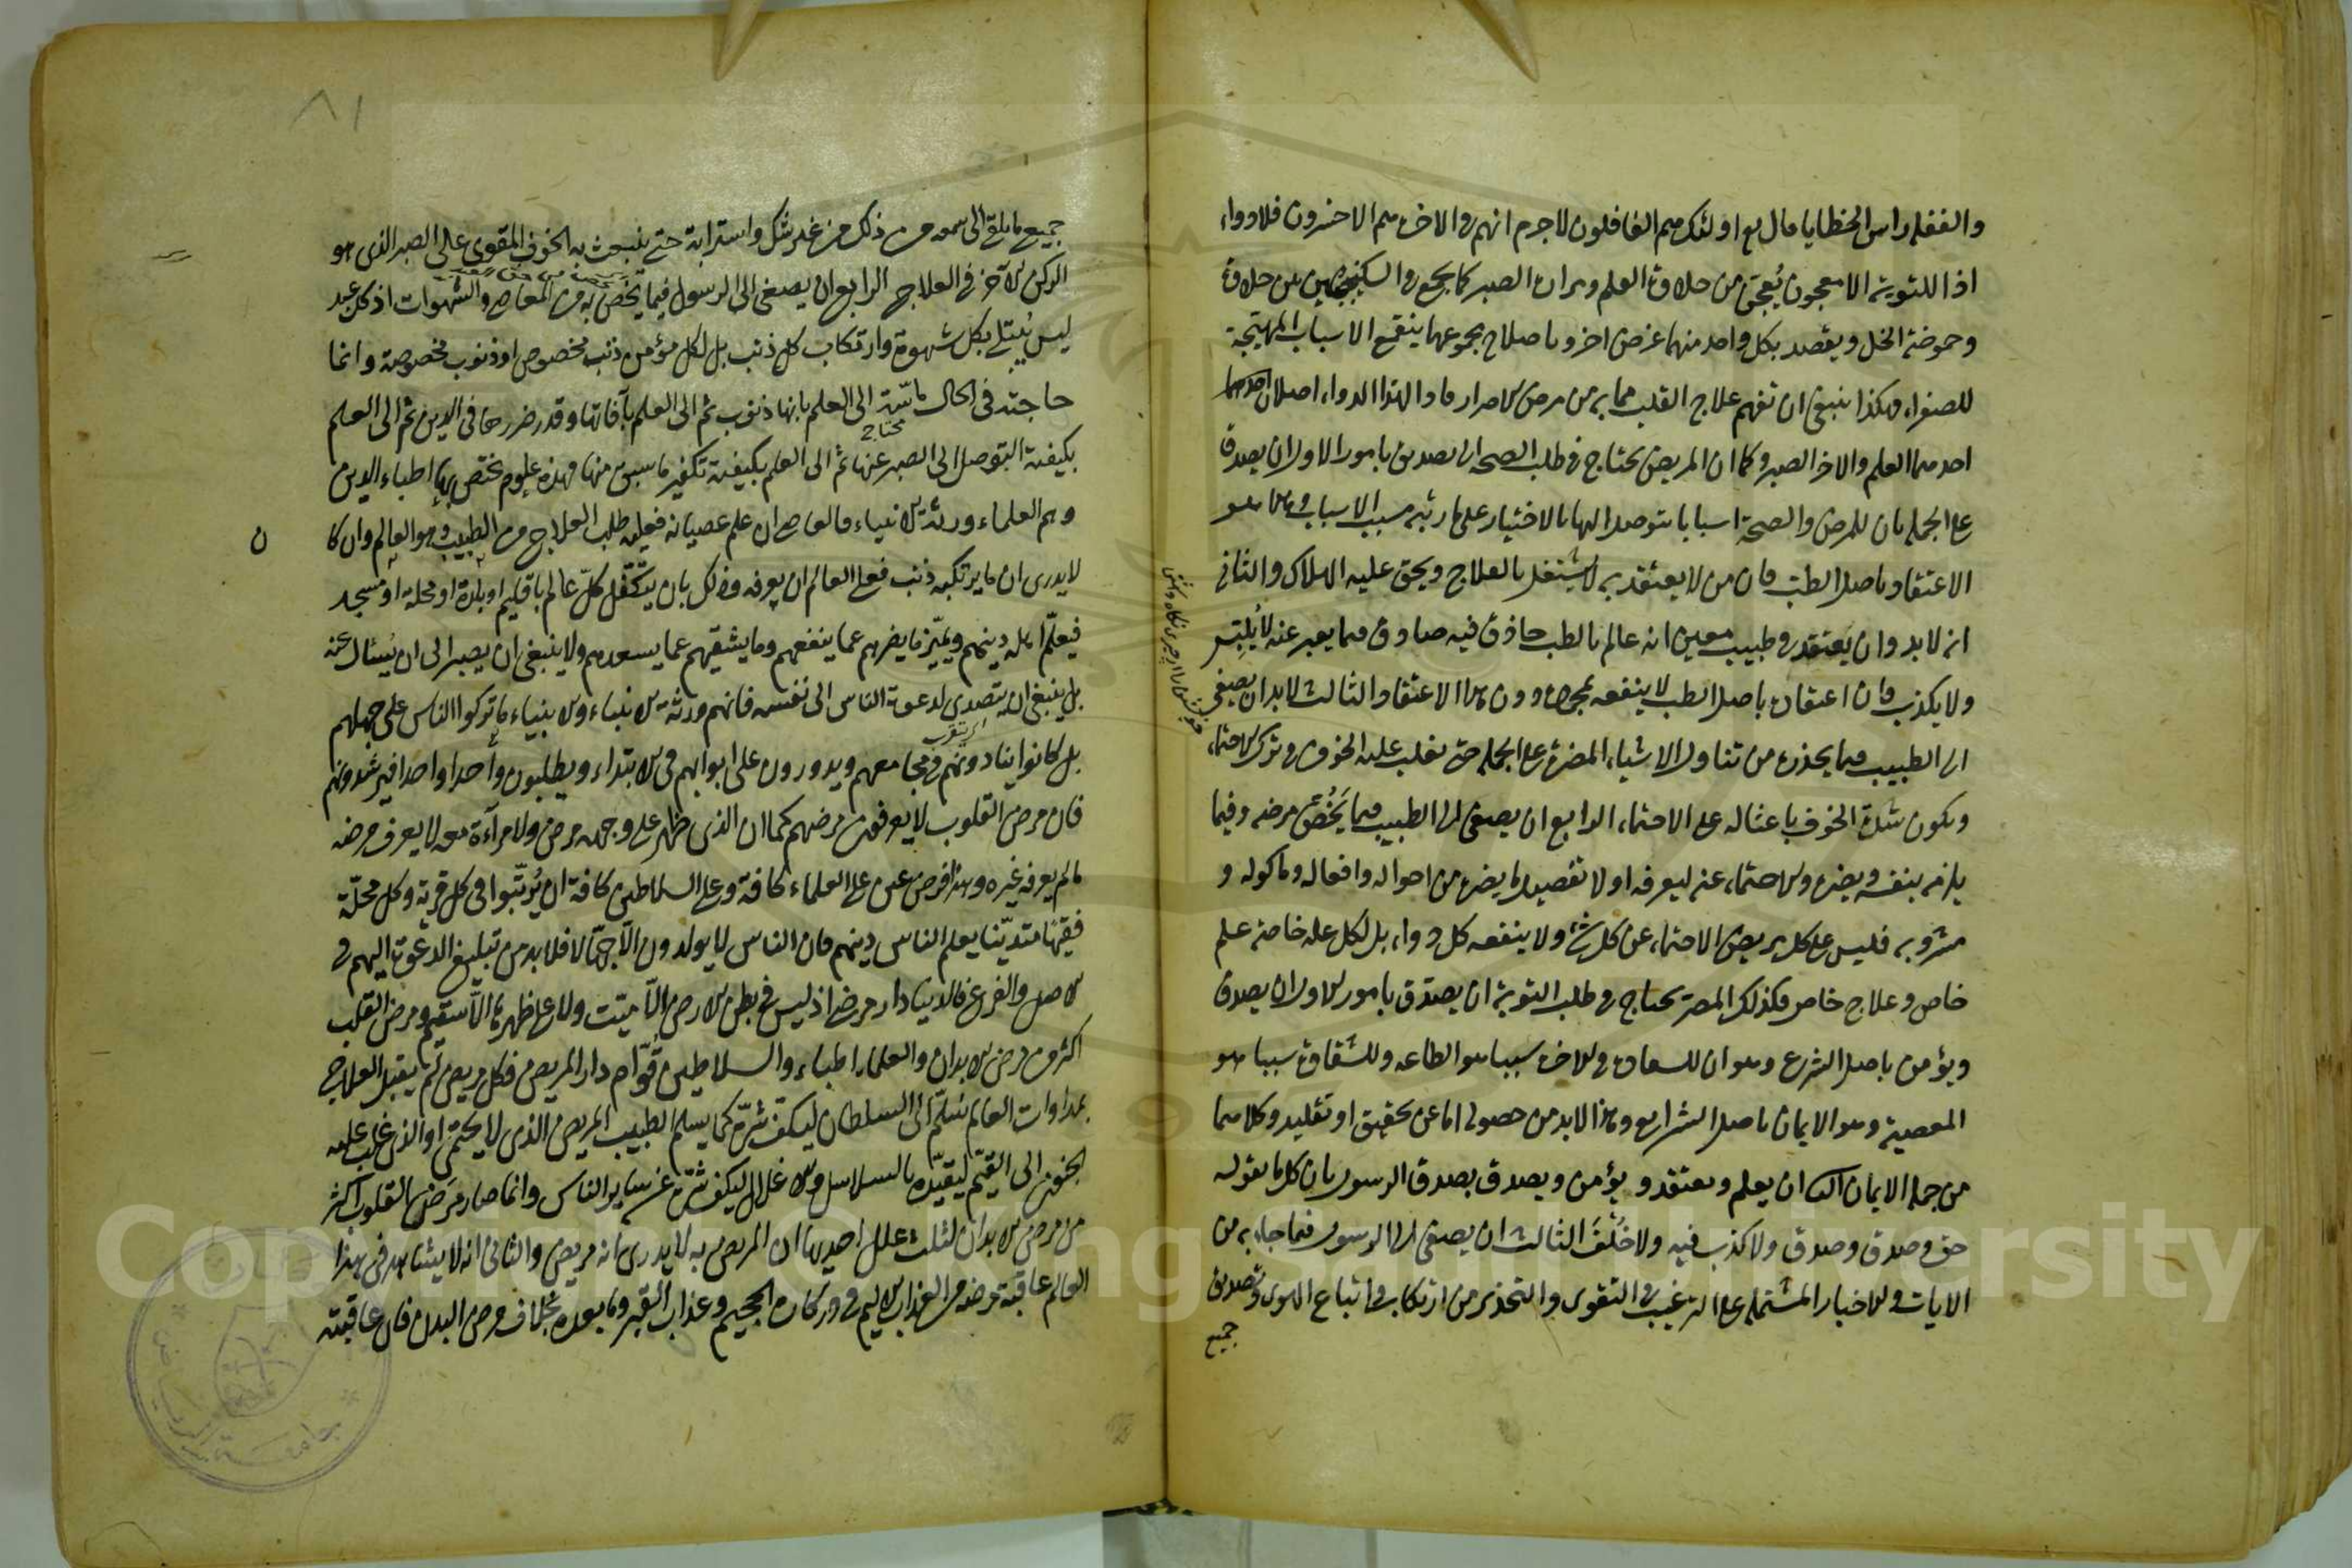 والغفلة راس الخطايا قال تع اولئك هم الغافلون لاجرم انهم في الاخرة هم الاخسرون فلا دواء
اذا للتوبة الا معجون يُعجَن من حلاوة العلم ومرارة الصبر كما يجمع في السكنجبين من حلاوة
وحموضة الخل ويقصد بكل واحد منهما غرض اخر و باصلاح مجموعهما ينقمع الاسباب المهيّجة
للصفراء فهكذا ينبغي ان تفهم علاج القلب مما به من مرض الاصرار فاذا لهذا الدواء اصلان احدهما
احدهما العلم والاخر الصبر وكما ان المريض يحتاج في طلب الصحة الى تصديق بامور الاول ان يصدق
على الجملة بان للمرض والصحة اسبابا يتوصل اليها بالاختيار على ما رتبه مسبب الاسباب وهذا هو
الاعتقاد باصل الطب فان من لا يعتقد به لا يشتغل بالعلاج ويحق عليه الهلاك والثاني
انه لابد وان يعتقد في طبيب معين انه عالم بالطب حاذق فيه صادق فيما يعبر عنه لا يُلبّس
ولا يكذب فان اعتقاده باصل الطب لا ينفعه بمجرده دون هذا الاعتقاد والثالث لابد ان يصغي
الى الطبيب فيما يحذره من تناول الاشياء المضرة على الجملة حتى يغلب عليه الخوف في ترك الاحتماء
ويكون شدة الخوف باعثا له على الاحتماء الرابع ان يصغى الى الطبيب فيما يَخُصّ مرضه وفيما
يلزمه بنفسه ويضره والاحتماء عنه ليعرفه اولا تفصيل ما يضره من احواله وافعاله وماكوله و
مشروبه فليس على كل مريض الاحتماء عن كل شئ ولا ينفعه كل دواء بل لكل علة خاصة علم
خاص وعلاج خاص فكذلك المصر يحتاج في طلب التوبة ان يصدّق بامور الاول ان يصدق
ويؤمن باصل الشرع وهو ان للسعادة في الاخرة سببا هو الطاعة وللشقاوة سببا هو
المعصية وهو الايمان باصل الشرايع وهذا لابد من حصوله اما عن تحقيق او تقليد وكلاهما
من جملة الايمان الثا ان يعلم ويعتقد و يؤمن ويصدق بصدق الرسول بان كل ما يقوله
حق وصدق وصدق ولا كذب فيه ولا خُلْفَ الثالث ان يصغى الى الرسول فيما جاء به من
الايات والاخبار المشتملة على الترغيب في التقوى والتحذير من ارتكاب واتباع الهوى وتصديق
جميع
٨١
جميع ما يلقى الى سمعه من ذلك من غير شك واسترابة حتى ينبعث به الخوف المقوي على الصبر الذي هو
الركن الآخر في العلاج الرابع ان يصغى الى الرسول فيما يَخُصّ به من المعاصي والشهوات اذ كل عبد
ليس يُبتلى بكل شهوة وارتكاب كل ذنب بل لكل مؤمن ذنب مخصوص او ذنوب مخصوصة وانما
حاجته في الحال ماسّة الى العلم بانها ذنوب ثم الى العلم بآفاتها وقدر ضررها في الدين ثم الى العلم
محتاج
بكيفية التوصل الى الصبر عنها ثم الى العلم بكيفية تكفير ما سبق منها فهذه علوم تختص بها اطباء الدين
وهم العلماء ورثة الانبياء فالعاصي ان علم عصيانه فعليه طلب العلاج من الطبيب وهو العالم وان كا
ن
لا يدري ان ما يرتكبه ذنب فعلى العالم ان يعرفه وذلك بان يتكفّل كلّ عالم باقليم او بلدة او محلة او مسجد
فيعلّم اهله دينهم ويميّز ما يضرهم عما ينفعهم وما يشقيهم عما يسعدهم ولا ينبغي ان يصبر الى ان يُسئل عنه
بل ينبغي ان يتصدى لدعوة الناس الى نفسه فانهم ورثة الانبياء والانبياء ما تركوا الناس على جهلهم
بل كانوا ينادونهم في مجامعهم ويدورون على ابوابهم في الابتداء ويطلبون واحدا واحدا فيرشدونهم
فان مرض القلوب لا يعرفون مرضهم كما ان الذي ظهر على وجهه مرض ولا مرآة معه لا يعرف مرضه
ما لم يعرفه غيره وهذا فرض عين على العلماء كافة وعلى السلاطين كافة ان يُرتّبوا في كل قرية وكل محلّة
فقيهًا متديّنا يعلم الناس دينهم فان الناس لا يولدون الّا جهّالا فلا بد من تبليغ الدعوة اليهم في
الاصل والفرع فالدنيا دار مرضى اذ ليس في بطن الارض الّا ميّت ولا على ظهرها الّا سقيم ومرض القلب
اكثر من مرض الابدان والعلماء اطباء والسلاطين قُوّام دار المريض فكل مريض لم يقبل العلاج
بمداوات العالم يُسَلّم الى السلطان ليكفّ شرّه كما يسلم الطبيب المريض الذي لا يحتمى او الذي غلب عليه
الجنون الى القيّم ليقيّده بالسلاسل والاغلال ليكف شرّه عن ساير الناس وانما صار مَرَض القلوب اكثر
من مرض الابدان لثلث علل احديها ان المريض به لا يدرى انه مريض والثاني انه لا يشاهد في هذا
العالم عاقبة مرضه من العذاب الاليم في دركات الجحيم وعذاب القبر وما بعده بخلاف مرض البدن فان عاقبته